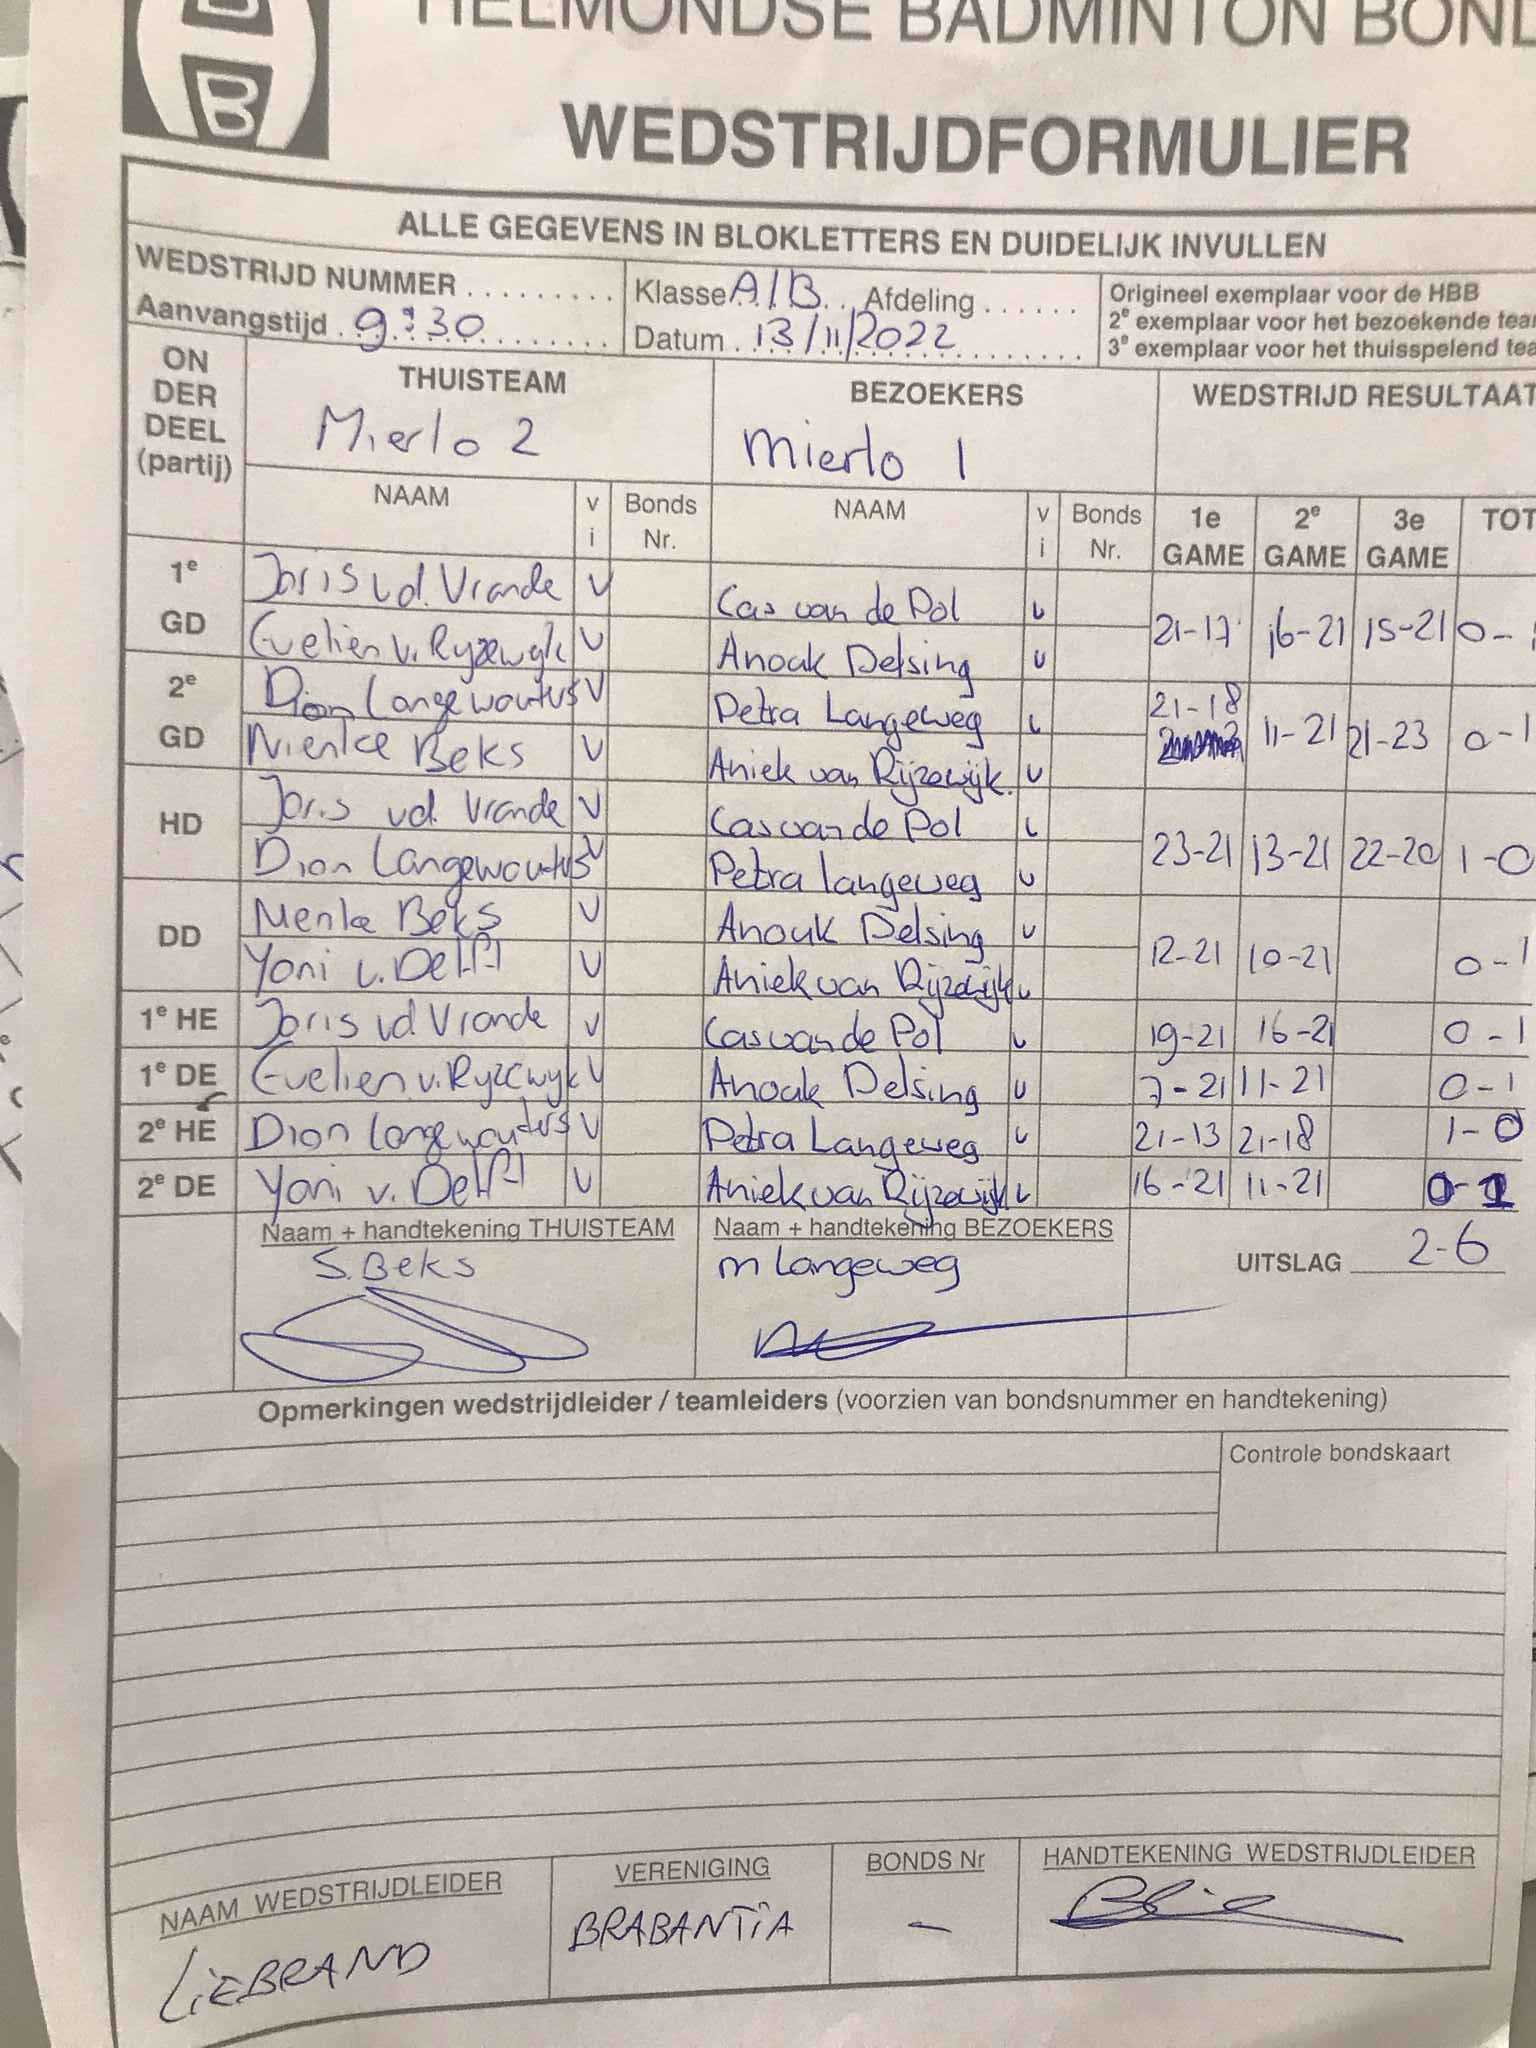 HELMONDSE BADMINTON BOND
B
WEDSTRIJDFORMULIER
ALLE GEGEVENS IN BLOKLETTERS EN DUIDELIJK INVULLEN
WEDSTRIJD NUMMER
Klasse A/B Afdeling
Origineel exemplaar voor de HBB
Aanvangstijd 9:30
Datum 13/11/2022
2e exemplaar voor het bezoekende tea
3e exemplaar voor het thuisspelend tea
ON DER DEEL (partij)
THUISTEAM
BEZOEKERS
WEDSTRIJD RESULTAAT
Mierlo 2
Mierlo 1
NAAM v i Bonds Nr. NAAM v i Bonds Nr. 1e GAME 2e GAME 3e GAME TOT
1e GD Joris v.d. Vrande v Cas van de Pol v 21-17 16-21 15-21 0-1
Evelien v. Ryzewyk v Anouk Delsing v
2e GD Dion Langewouters v Petra Langeweg v 21-18 11-21 21-23 0-1
Nienke Beks v Aniek van Rijzewijk v
HD Joris vd. Vrande v Cas van de Pol v 23-21 13-21 22-20 1-0
Dion Langewouters v Petra Langeweg v
DD Nienke Beks v Anouk Delsing v 12-21 10-21 0-1
Yoni v. Delft v Aniek van Rijzewijk v
1e HE Joris vd Vrande v Cas van de Pol v 19-21 16-21 0-1
1e DE Evelien v. Ryzewyk v Anouk Delsing v 7-21 11-21 0-1
2e HE Dion Langewouters v Petra Langeweg v 21-13 21-18 1-0
2e DE Yoni v. Delft v Aniek van Rijzewijk v 16-21 11-21 0-1
Naam + handtekening THUISTEAM
Naam + handtekening BEZOEKERS
UITSLAG 2-6
S. Beks
M Langeweg
Opmerkingen wedstrijdleider / teamleiders (voorzien van bondsnummer en handtekening)
Controle bondskaart
NAAM WEDSTRIJDLEIDER
VERENIGING
BONDS Nr
HANDTEKENING WEDSTRIJDLEIDER
LIEBRAND
BRABANTIA
-